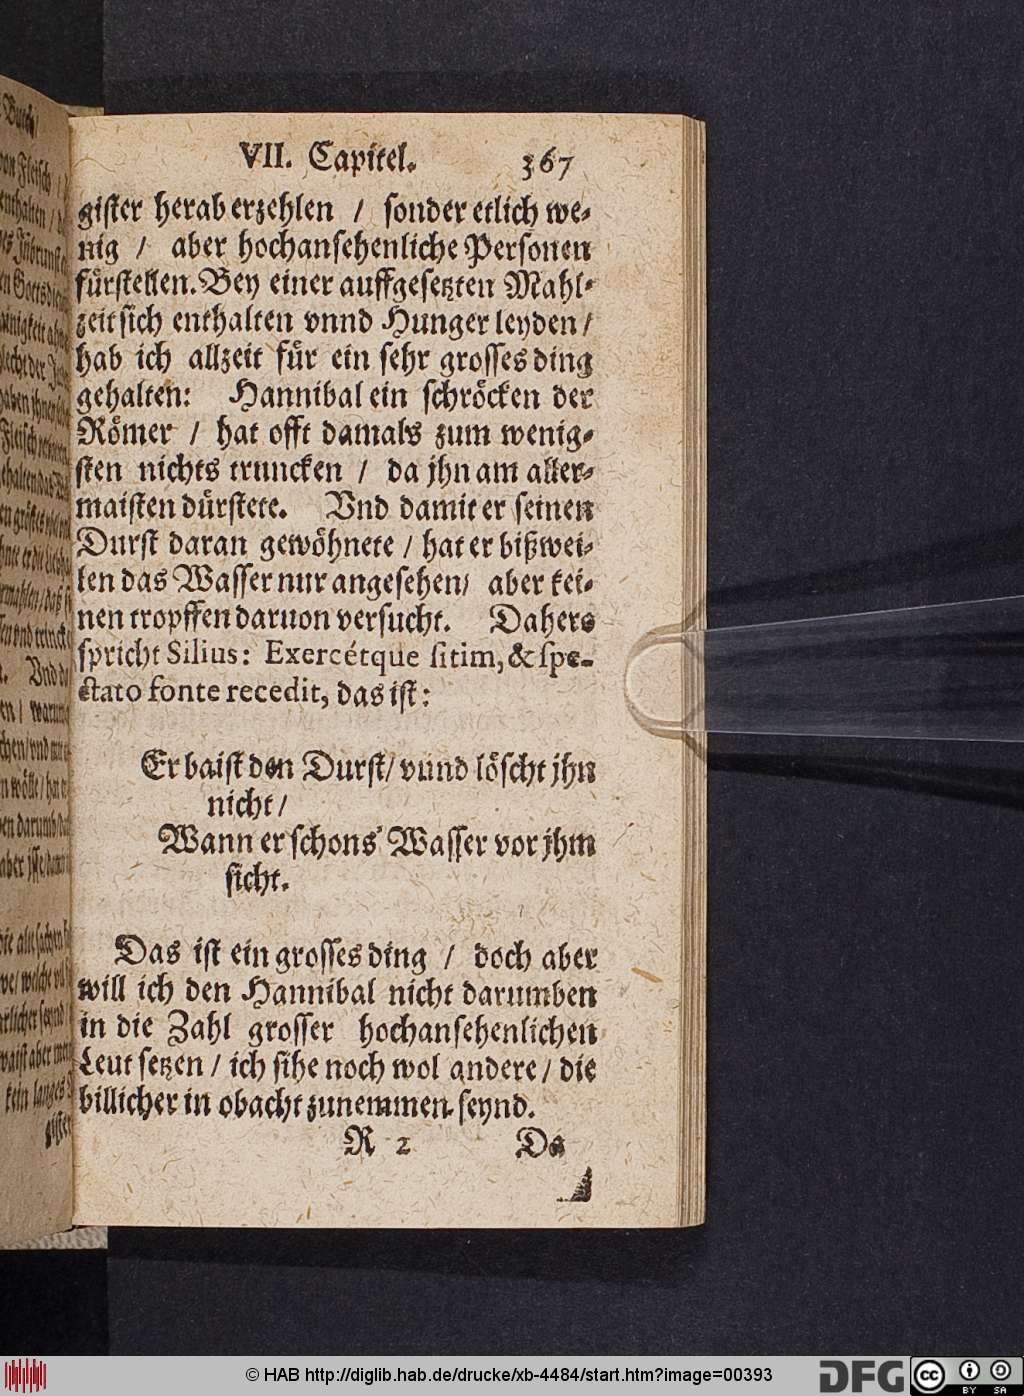 VII. Capitel. 367
gister herab erzehlen / sonder etlich we-
nig / aber hochansehenliche Personen
fürstellen. Bey einer auffgesetzten Mahl-
zeit sich enthalten vnnd Hunger leyden /
hab ich allzeit für ein sehr grosses ding
gehalten: Hannibal ein schröcken der
Römer / hat offt damals zum wenig-
sten nichts truncken / da jhn am aller-
maisten dürstete. Vnd damit er seinen
Durst daran gewöhnete / hat er bißwei-
len das Wasser nur angesehen / aber kei-
nen tropffen daruon versucht. Dahero
spricht Silius: Exercétque sitim, & spe-
ctato fonte recedit, das ist:
Er baist den Durst / vnnd löscht jhn
nicht /
Wann er schons Wasser vor jhm
sicht.
Das ist ein grosses ding / doch aber
will ich den Hannibal nicht darumben
in die Zahl grosser hochansehenlichen
Leut setzen / ich sihe noch wol andere / die
billicher in obacht zunemmen seynd.
R 2 Da
© HAB http://diglib.hab.de/drucke/xb-4484/start.htm?image=00393
DFG
cc BY SA